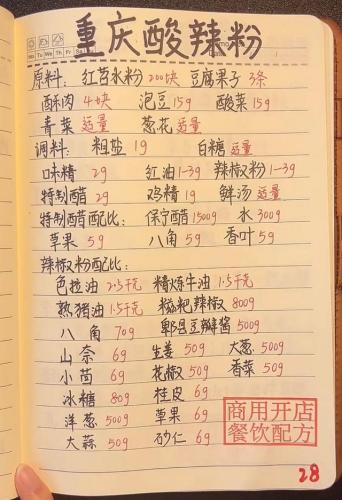 重庆酸辣粉
原料: 红苕水粉 200块 豆腐果子 3条
酥肉 4块 泡豆 15g 酸菜 15g
青菜 适量 葱花 适量
调料: 粗盐 1g 白糖 适量
味精 2g 红油 1-3g 辣椒粉 1-3g
特制醋 2g 鸡精 1g 鲜汤 适量
特制醋配比: 保宁醋 1500g 水 300g
草果 5g 八角 5g 香叶 5g
辣椒粉配比:
色拉油 2.5千克 精炼牛油 1.5千克
熟猪油 1.5千克 糍粑辣椒 800g
八角 70g 郫县豆瓣酱 500g
山奈 6g 生姜 50g 大葱 500g
小茴 6g 花椒 50g 香菜 50g
冰糖 80g 桂皮 6g
洋葱 500g 草果 6g
大蒜 50g 砂仁 6g
商用开店
餐饮配方
28